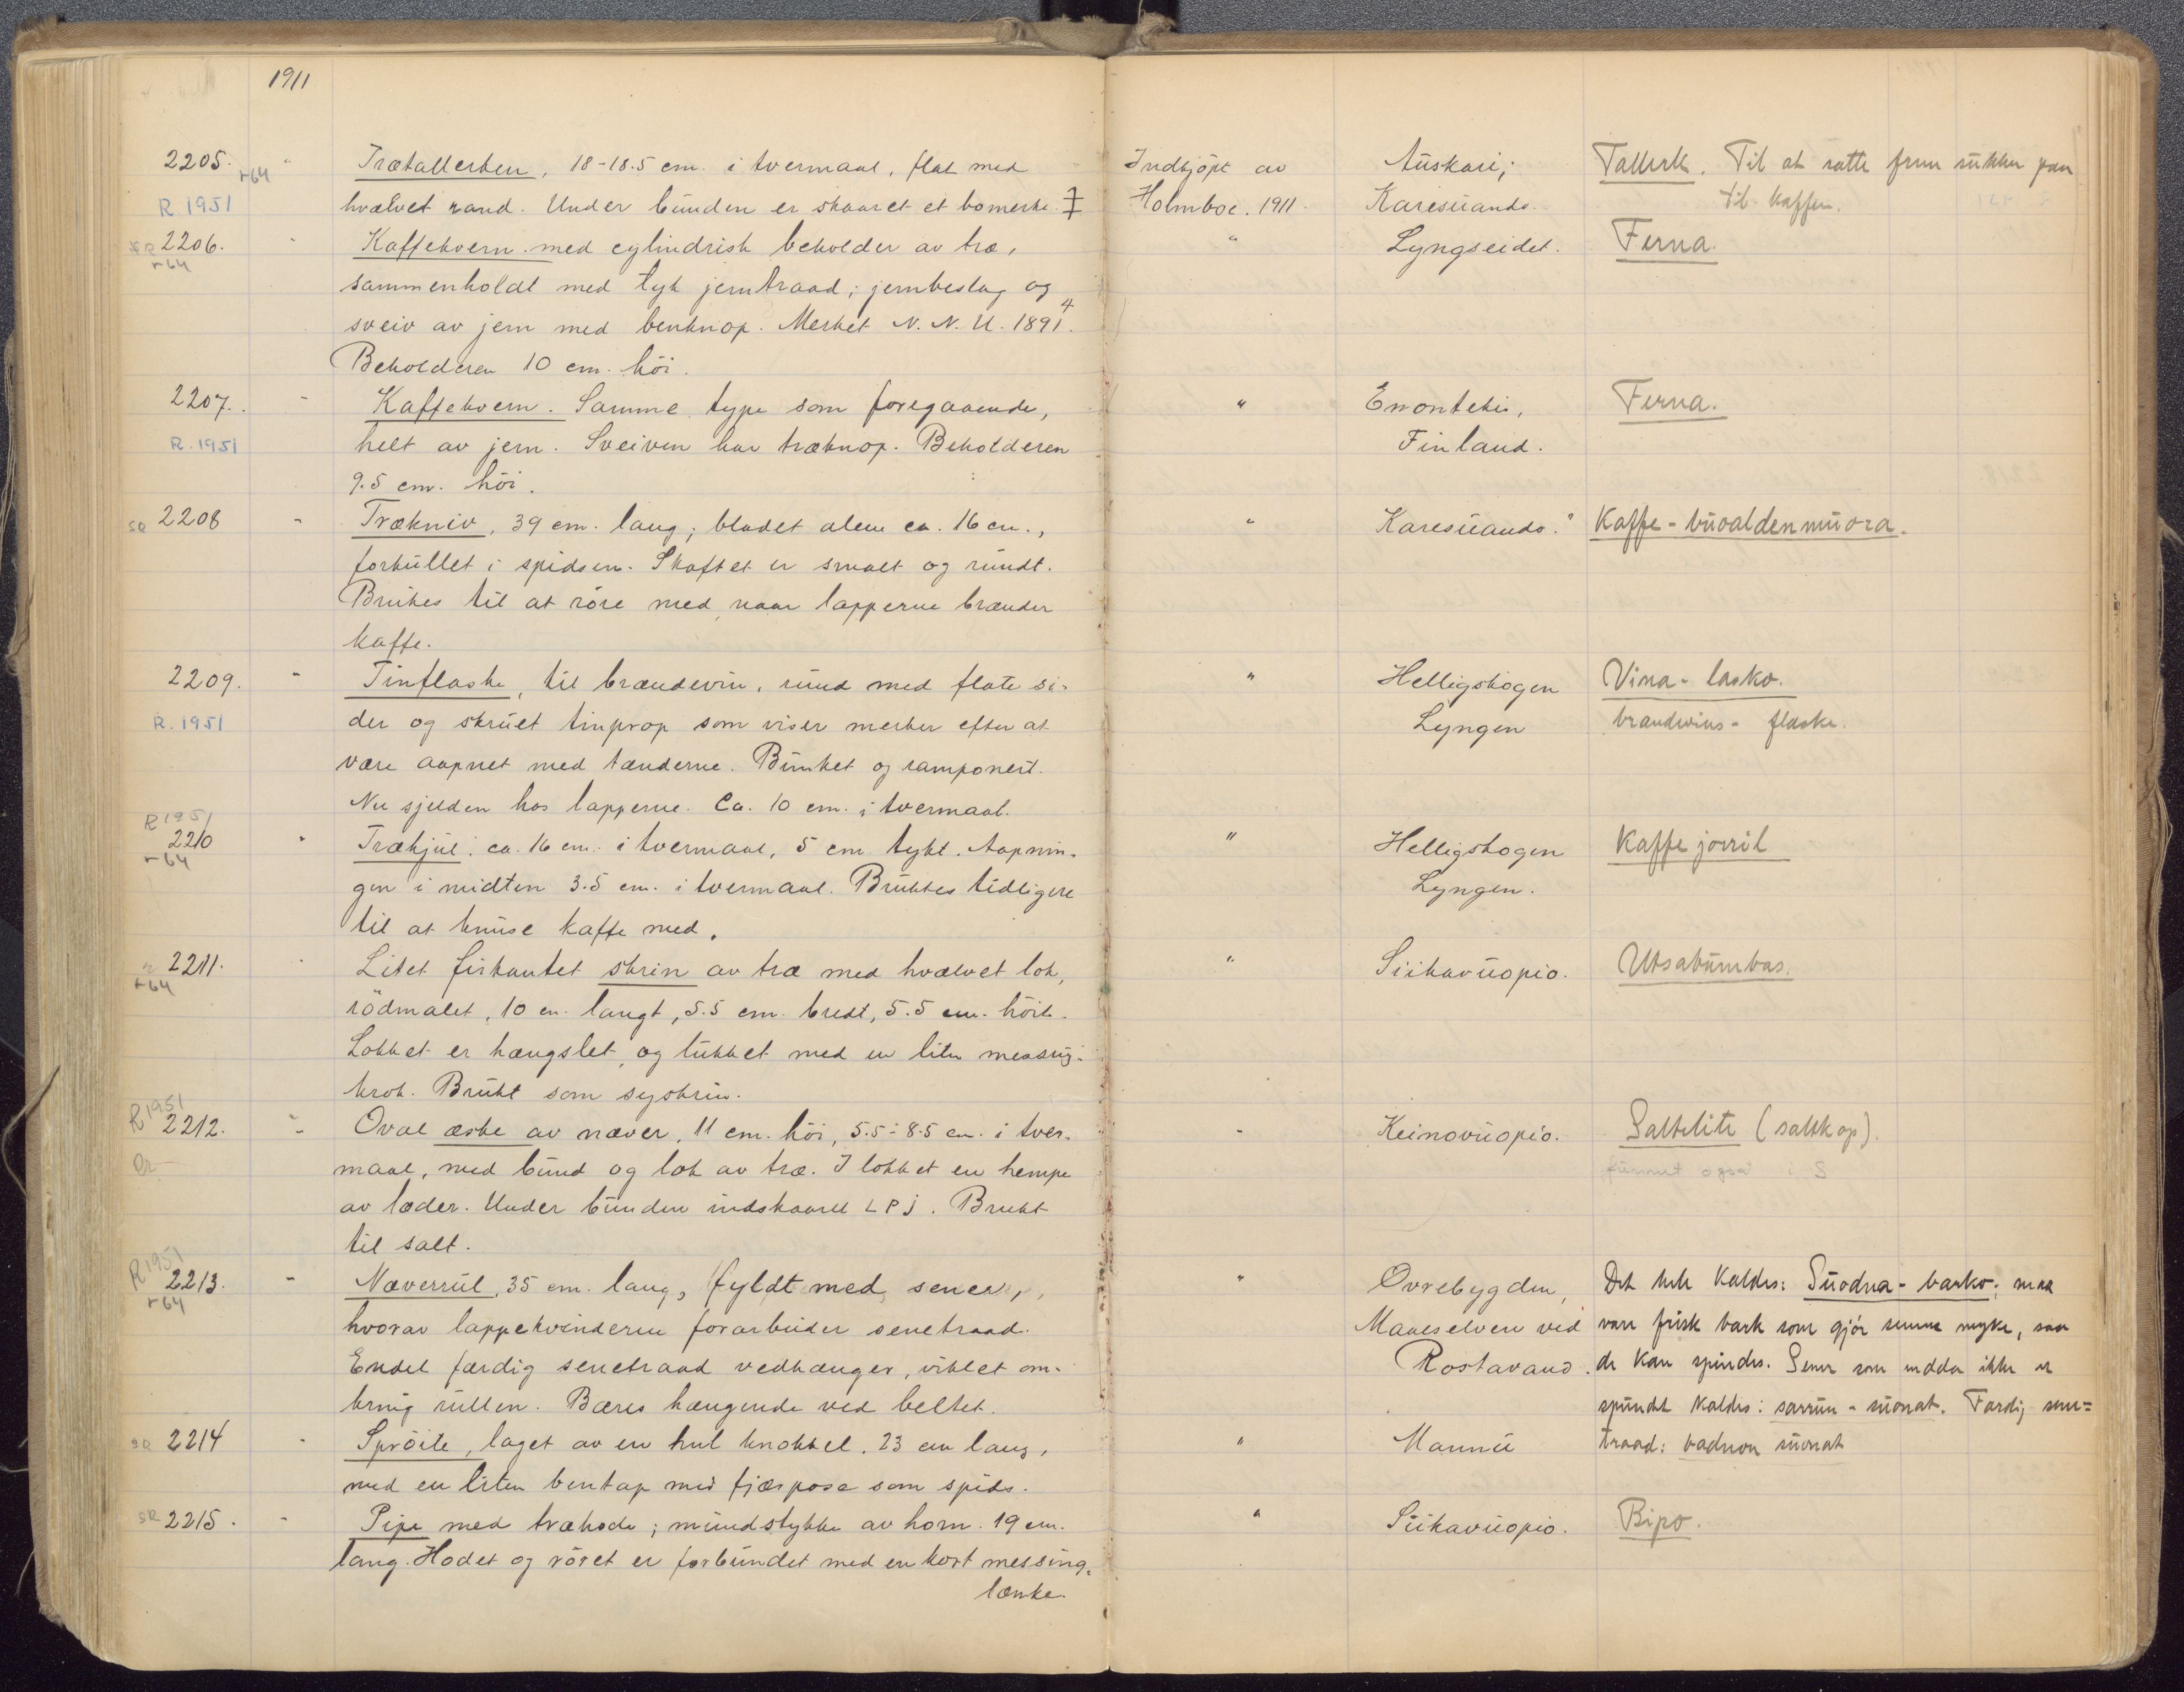 1911
2205. r64 " Trætallerken, 18-18.5 cm. i tvermaal, flat med Indkjöpt av Auskari; Tallerk. Til at sætte frem sukker paa
R 1951 hvælvet rand. Under bunden er skaaret et bomerke. Holmboe. 1911. Karesuando. til kaffen.
SR 2206. " Kaffekvern med cylindrisk beholder av træ, " Lyngseidet. Ferna.
r64 sammenholdt med tyk jerntraad; jernbeslag og
sveiv av jern med benknop. Merket N. N. U. 1891 4.
Beholderen 10 cm. höi.
2207. " Kaffekvern. Samme type som foregaaende, " Enontekis, Ferna.
R. 1951 helt av jern. Sveiven har træknop. Beholderen Finland.
9.5 cm. höi.
SR 2208 " Trækniv, 39 cm. lang; bladet alene ca. 16 cm., " Karesuando." Kaffe-buoaldenmuora.
forkullet i spidsen. Skaftet er smalt og rundt.
Brukes til at röre med, naar lapperne brænder
kaffe.
2209. " Tinflaske, til brændevin, rund med flate si- " Helligskogen Vina-lasko.
R. 1951 der og skruet tinprop som viser merker efter at Lyngen brændevins-flaske.
være aapnet med tænderne. Bunket og ramponert.
Nu sjelden hos lapperne. Ca. 10 cm. i tvermaal.
R 1951
2210 " Træhjul, ca. 16 cm. i tvermaal, 5 cm tykt. Aapnin- " Helligskogen Kaffe jorril
r64 gen i midten 3.5 cm. i tvermaal. Bruktes tidligere Lyngen.
til at knuse kaffe med.
2211. " Litet firkantet skrin av træ med hvælvet lok, " Siikavuopio. Utsabumbas.
r64 rödmalet, 10 cm. langt, 5.5 cm. bredt, 5.5 cm. höit.
Lokket er hængslet, og lukket med en liten messing-
krok. Brukt som syskrin.
R 1951
2212. " Oval æske av næver, 11 cm. höi, 5.5-8.5 cm. i tver- " Keinovuopio. Saltelite (saltkop).
maal, med bund og lok av træ. I lokket en hempe funnet også i S
av læder. Under bunden indskaaret LPJ. Brukt
til salt.
R 1951
2213. " Næverrul, 35 cm. lang, fyldt med sener, " Övrebygden, Det hele kaldes: Suodna-barko; maa
r64 hvorav lappekvinderne forarbeider senetraad. Maaelselven ved være frisk bark som gjör senene myke, saa
Endel færdig senetraad vedhænger, viklet om- Rostavand. de kan spindes. Sener som endda ikke er
kring rullen. Bæres hængende ved beltet. spundt kaldes: sarrum-suonat. Færdig sene=
SR 2214 " Spröite, laget av en hul knokkel, 23 cm lang, " Mannu traad: badnon suonat
med en liten bentap med fjærpose som spids.
SR 2215. " Pipe med træhode; mundstykke av horn. 19 cm. " Siikavuopio. Bipo.
lang. Hodet og röret er forbundet med en kort messing-
lænke.